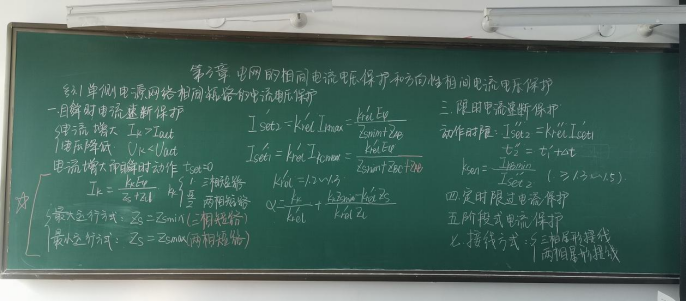 第3章 电网的相间电流电压保护和方向性相间电流电压保护
§3.1 单侧电源网络相间短路的电流电压保护
一.瞬时电流速断保护
电流增大 IK>Iact
电压降低 UK<Uact
电流增大而瞬时动作 tset=0
IK = kkEφ / (Zs+Z1l)
kk { 1 三相短路
√3/2 两相短路
最大运行方式: Zs=Zsmin(三相短路)
最小运行方式: Zs=Zsmax(两相短路)
I'set2 = k'rel Ikmax = k'rel Eφ / (Zsmin+ZAB)
I'set1 = k'rel Ikcmax = k'rel Eφ / (Zsmin+ZBC+ZAB)
k'rel=1.2~1.3
三.限时电流速断保护
动作时限: I''set2 = k''rel I'set1
t''2 = t'1+Δt
ksen = Ikmin / I''set2 (≥1.3~1.5)
四.定时限过电流保护
五.阶段式电流保护
接线方式:{三相星形接线
两相星形接线